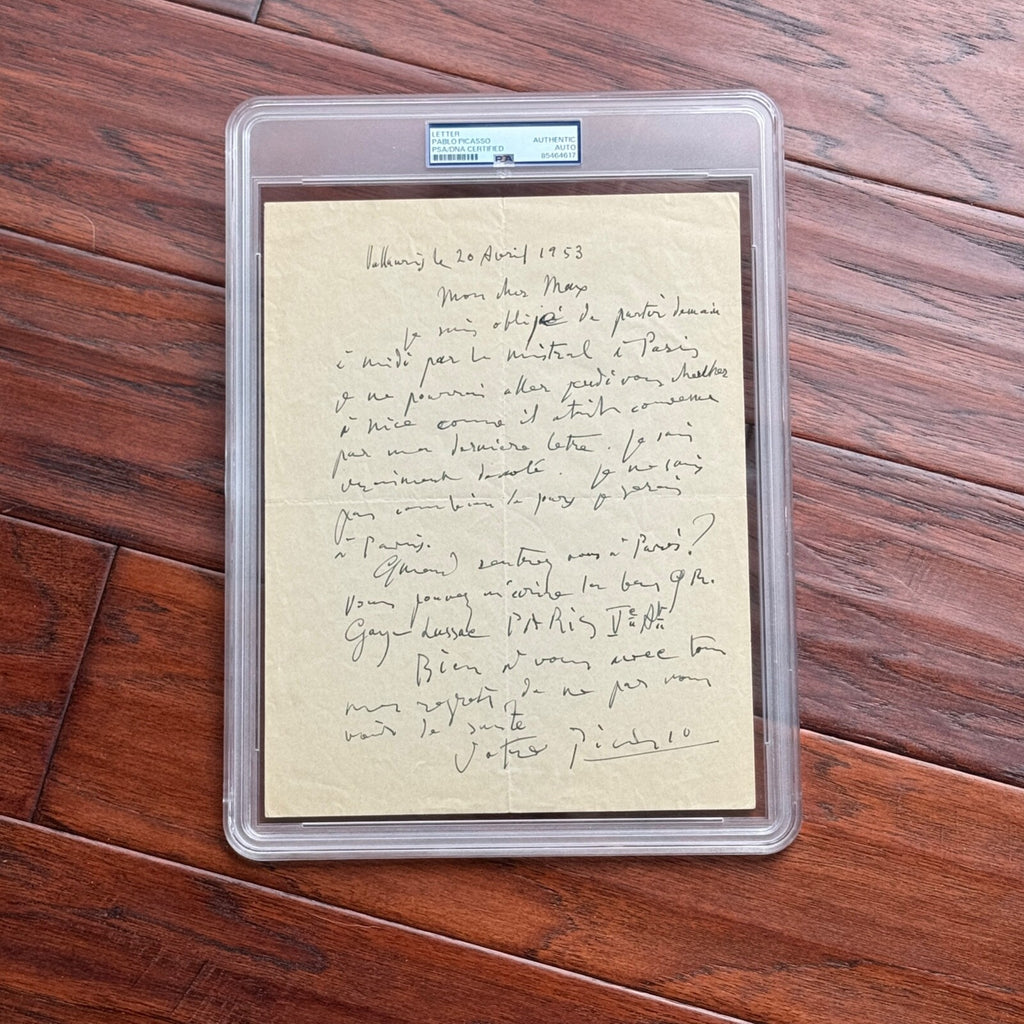 LETTER
PABLO PICASSO
PSA/DNA CERTIFIED
AUTHENTIC
AUTO
85464617
PSA
Vallauris le 20 Avril 1953
Mon cher Max
je suis obligé de partir demain
à midi par le mistral à Paris
je ne pourrai aller jeudi vous chercher
à Nice comme il convenu
par ma dernière letre. Je suis
vraiment désolé. je ne sais
pas combien de jours je serais
à Paris.
Quand rentrez vous à Paris?
Vous pouvez m'écrire R.
Gay-Lussac PARIS Ve Art
Bien à vous avec tous
mes regrets de ne pas vous
voir de suite
Votre Picasso